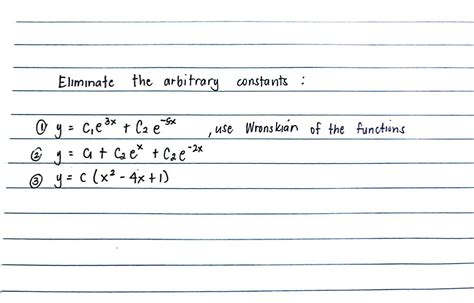 Eliminate the arbitrary constants :
① y = C₁e³ˣ + C₂e⁻⁵ˣ , use Wronskian of the functions
② y = C₁ + C₂eˣ + C₂e⁻²ˣ
③ y = C (x² - 4x + 1)